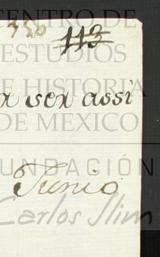 CENTRO DE
330
113
ESTUDIOS
DE HISTORIA
ser assi
DE MEXICO
FUNDACIÓN
Junio
Carlos Slim